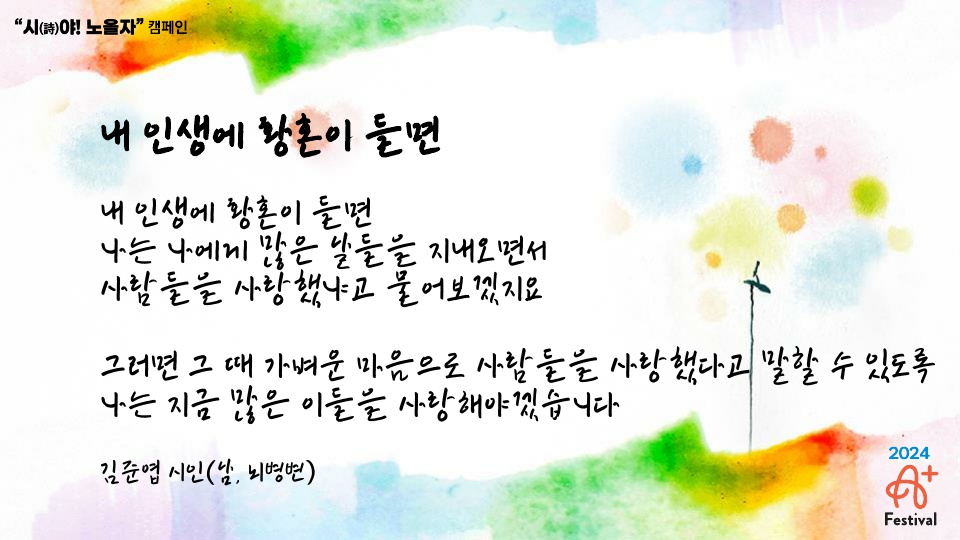 “시(詩)야! 노올자” 캠페인
내 인생에 황혼이 들면
내 인생에 황혼이 들면
나는 나에게 많은 날들을 지내오면서
사람들을 사랑했냐고 물어보겠지요
그러면 그 때 가벼운 마음으로 사람들을 사랑했다고 말할 수 있도록
나는 지금 많은 이들을 사랑해야겠습니다
김준엽 시인(남, 뇌병변)
2024
A+
Festival